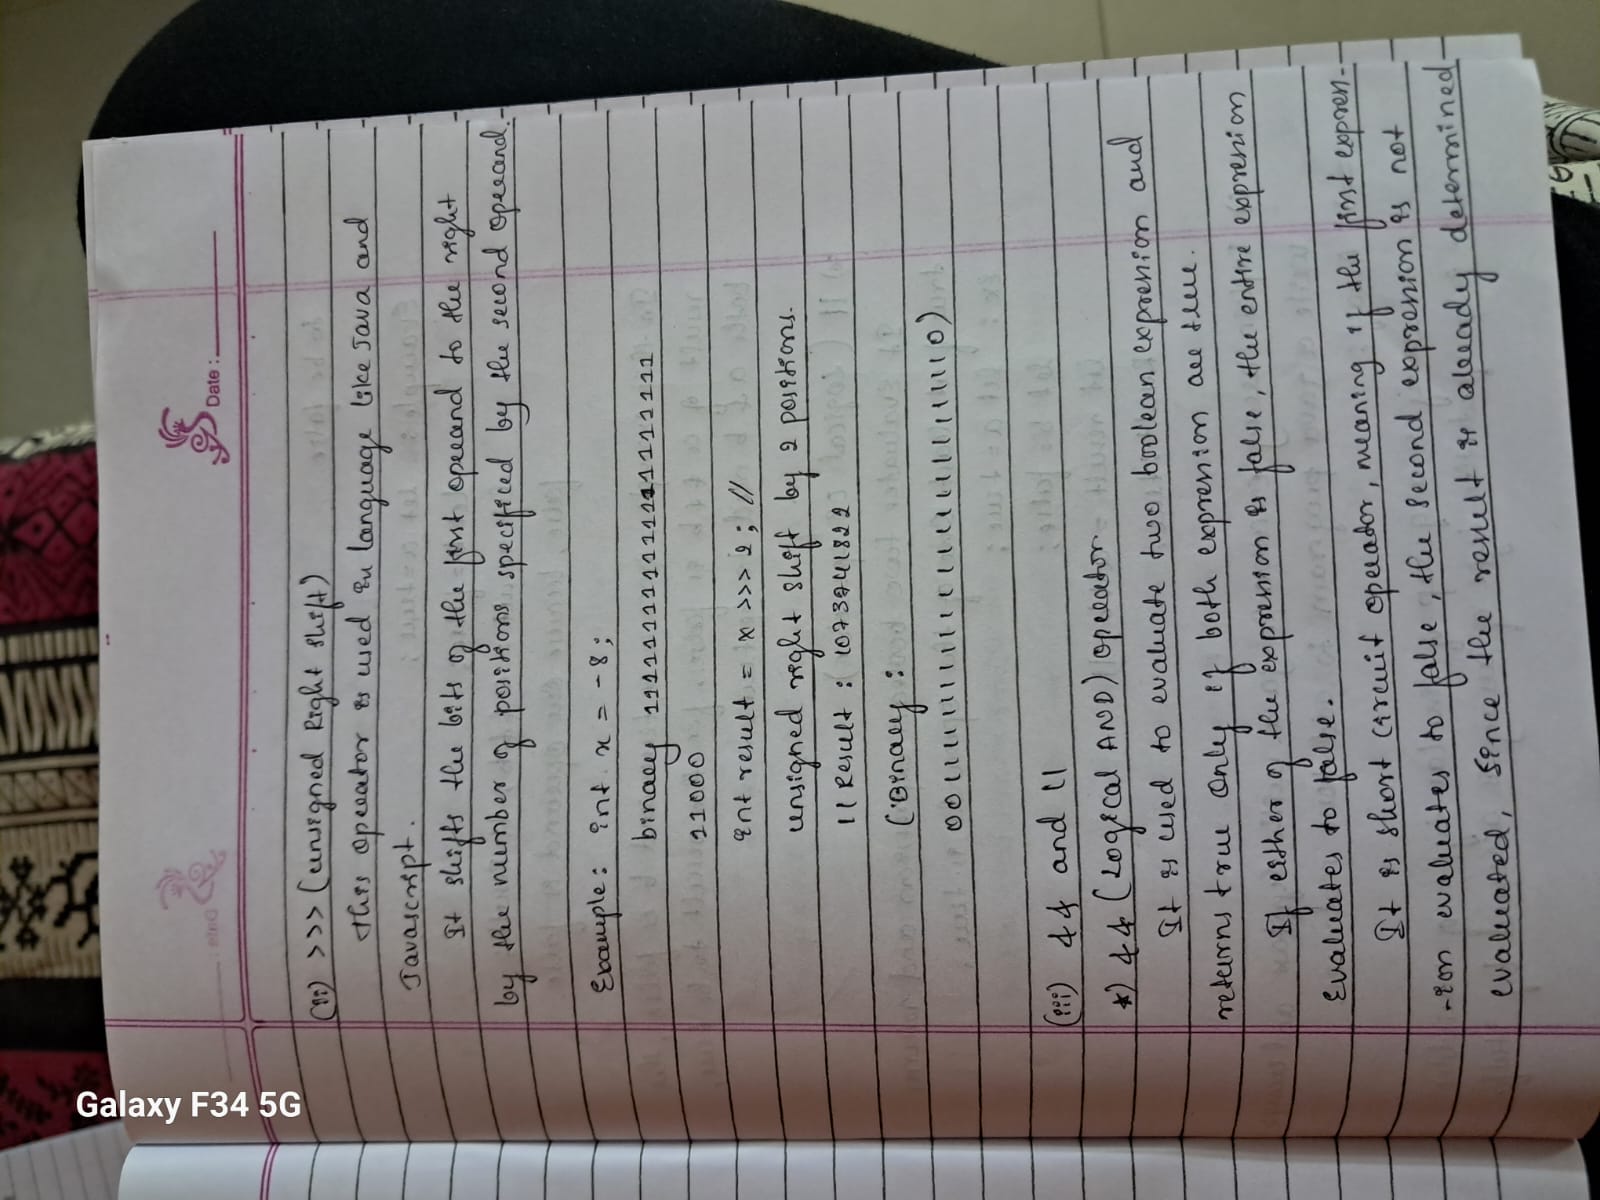 Date :
(ii) >>> (unsigned Right shift)
This operator is used in language like Java and
Javascript.
It shifts the bits of the first operand to the right
by the number of positions specified by the second operand.
Example : int x = -8 ;
binary 111111111111111111111111111
11000
int result = x >>> 2 ; //
unsigned right shift by 2 positions.
// Result : 1073741822
(Binary :
00111111111111111111111111111110)
(iii) && and ||
*) && (Logical AND) operator
It is used to evaluate two boolean expression and
returns true only if both expression are true.
If either of the expression is false, the entire expression
Evaluates to false.
It is short circuit operator, meaning if the first expres-
-sion evaluates to false, the second expression is not
evaluated, since the result is already determined
Galaxy F34 5G